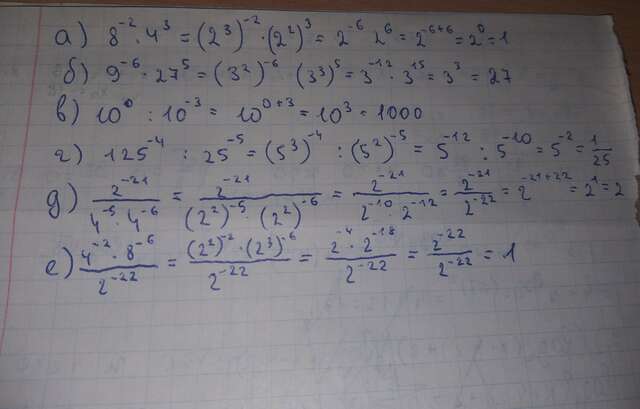 а) 8⁻² · 4³ = (2³)⁻² · (2²)³ = 2⁻⁶ 2⁶ = 2⁻⁶⁺⁶ = 2⁰ = 1
б) 9⁻⁶ · 27⁵ = (3²)⁻⁶ (3³)⁵ = 3⁻¹² · 3¹⁵ = 3³ = 27
в) 10⁰ : 10⁻³ = 10⁰⁺³ = 10³ = 1000
г) 125⁻⁴ : 25⁻⁵ = (5³)⁻⁴ : (5²)⁻⁵ = 5⁻¹² : 5⁻¹⁰ = 5⁻² = 1/25
д) 2⁻²¹/(4⁻⁵ · 4⁻⁶) = 2⁻²¹/((2²)⁻⁵ · (2²)⁻⁶) = 2⁻²¹/(2⁻¹⁰ · 2⁻¹²) = 2⁻²¹/2⁻²² = 2⁻²¹⁺²² = 2¹ = 2
е) (4⁻² · 8⁻⁶)/2⁻²² = ((2²)⁻² · (2³)⁻⁶)/2⁻²² = (2⁻⁴ · 2⁻¹⁸)/2⁻²² = 2⁻²²/2⁻²² = 1